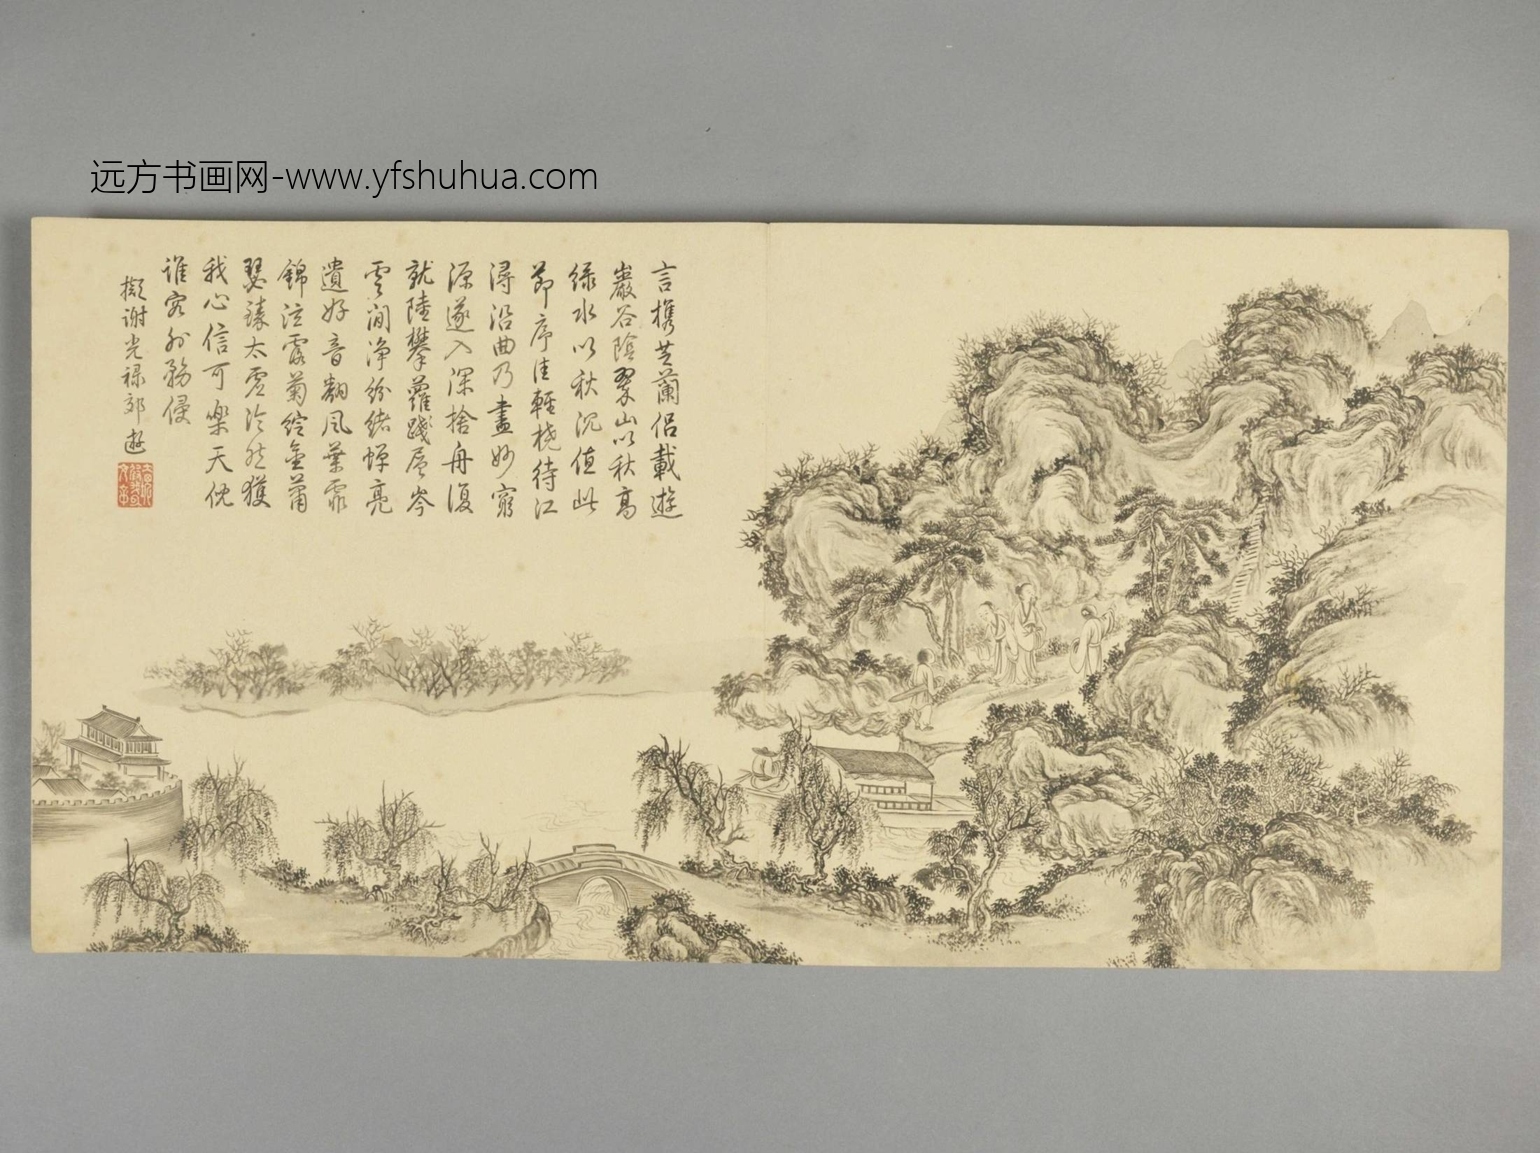 远方书画网-www.yfshuhua.com
言攜芝蘭侶載遊
巖谷陰翠山以秋高
綠水以秋沉值此
節序佳輕橈待江
潯沿曲乃盡妙窮
源遂入深捨舟復
就陸攀蘿踐層岑
雲間淨紛緒蟬亮
遺好音翻風葉霏
錦泣露菊綻金蕭
瑟臻太虛泠然獲
我心信可樂天倪
誰容外務侵
擬謝光祿郊遊